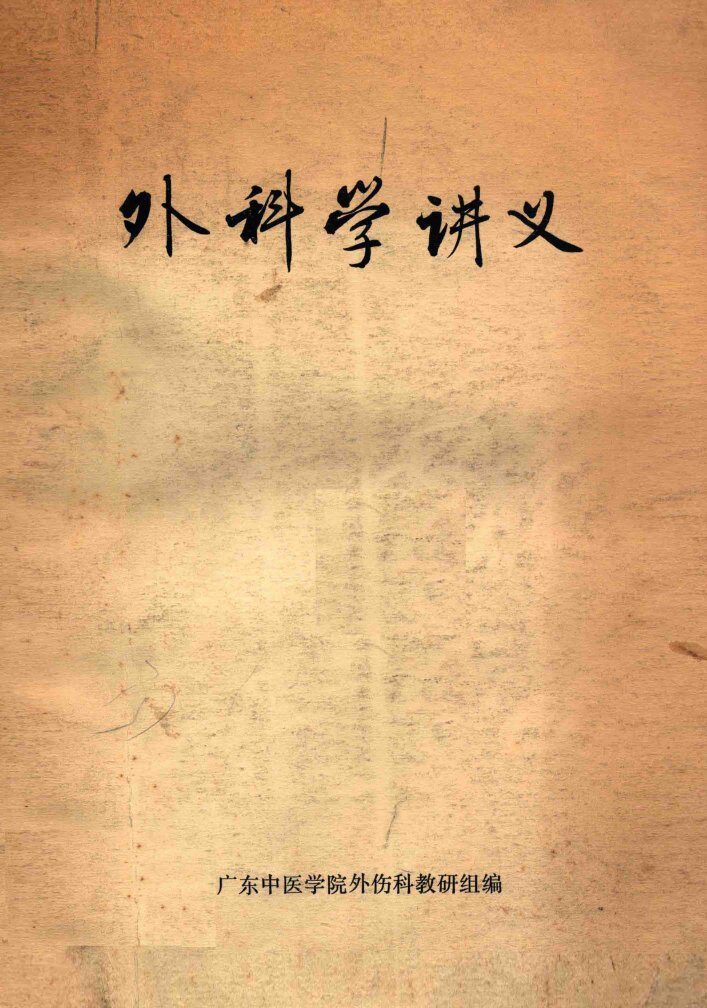 外科学讲义
广东中医学院外伤科教研组编